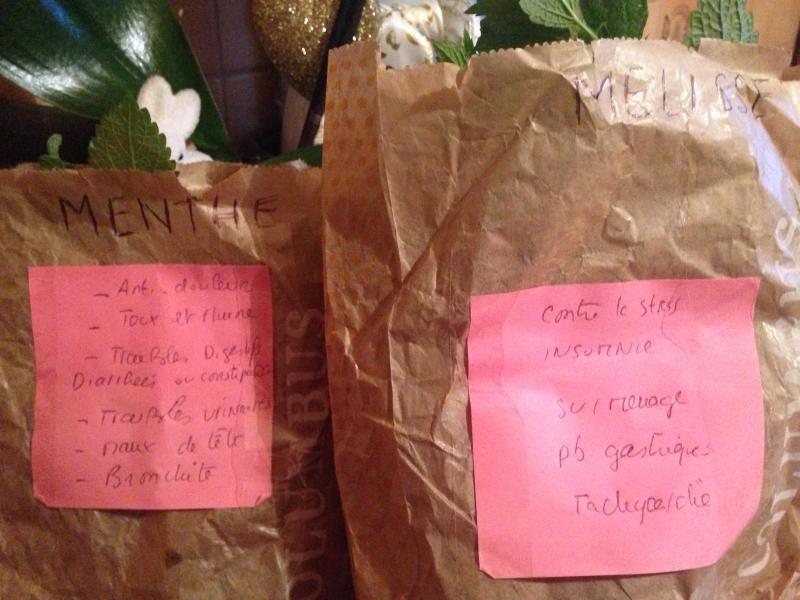 MENTHE
- Anti-douleur
- Toux et rhume
- Troubles Digestifs
Diarrhées ou constipation
- Troubles urinaires
- maux de tête
- Bronchite
COLUMBUS
MELISSE
Contre le stress
INSOMNIE
surmenage
pb gastriques
Tachycardie